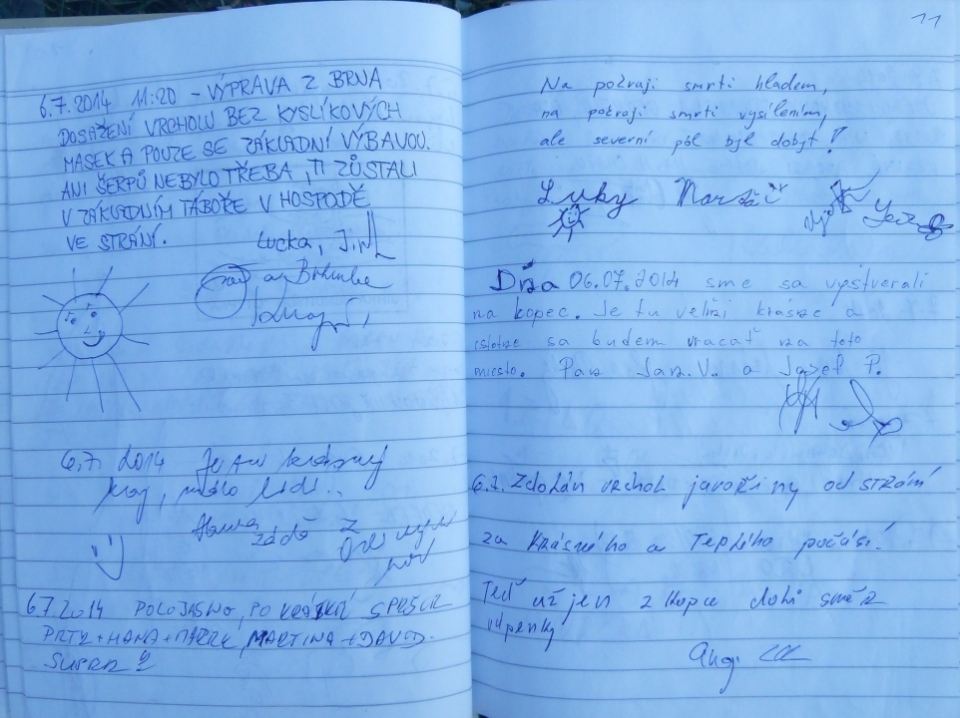 6.7.2014 11:20 - VÝPRAVA Z BRNA
DOSAŽENÍ VRCHOLU BEZ KYSLÍKOVÝCH
MASEK A POUZE SE ZÁKLADNÍ VÝBAVOU.
ANI ŠERPŮ NEBYLO TŘEBA, TI ZŮSTALI
V ZÁKLADNÍM TÁBOŘE V HOSPODĚ
VE STRÁNÍ.
Lucka, Jirk
6.7. 2014 Je tu krásný
kraj, málo lidí..
Hanka
z
6.7.2014 POLOJASNO, PO KRÁTKÉ SPRŠCE
PETR + HANA + MAREK, MARTINA + DAVID.
SUPER
11
Na pokraji smrti hladem,
na pokraji smrti vysílením,
ale severní pól byl dobyt!
Luky
Dňa 06.07.2014 sme sa vyštverali
na kopec. Je tu veľmi krásne a
istotne sa budem vracať na toto
miesto. Pan Jan.V. a Jozef P.
6.7. Zdolán vrchol javořiny od strání
za krásného a teplého počasí.
Teď už jen z kopce dolů směr
vápenky